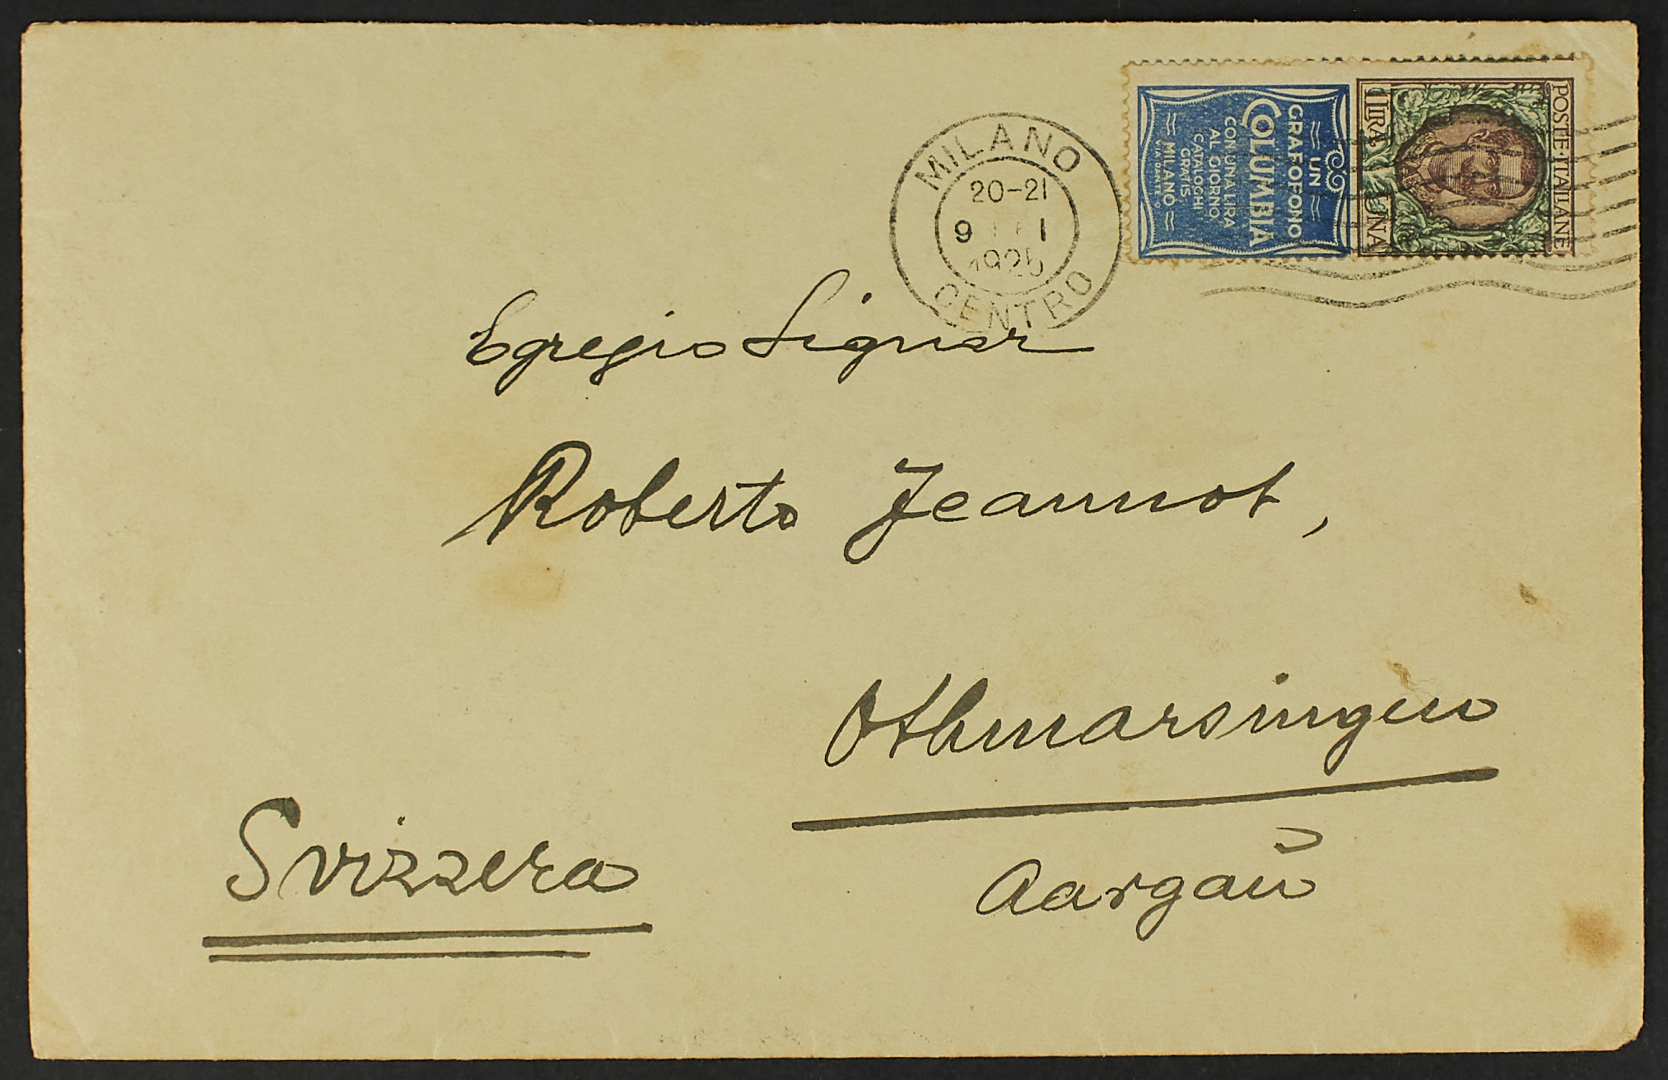 MILANO
20-21
9 I
1925
CENTRO
UN
GRAFOFONO
COLUMBIA
CON UNA LIRA
AL GIORNO,
CATALOGHI
GRATIS,
MILANO
VIA DANTE
POSTE·ITALIANE
1 LIRA UNA
Egregio Signor
Roberto Jeannot,
Othmarsingen
Svizzera
Aargaŭ